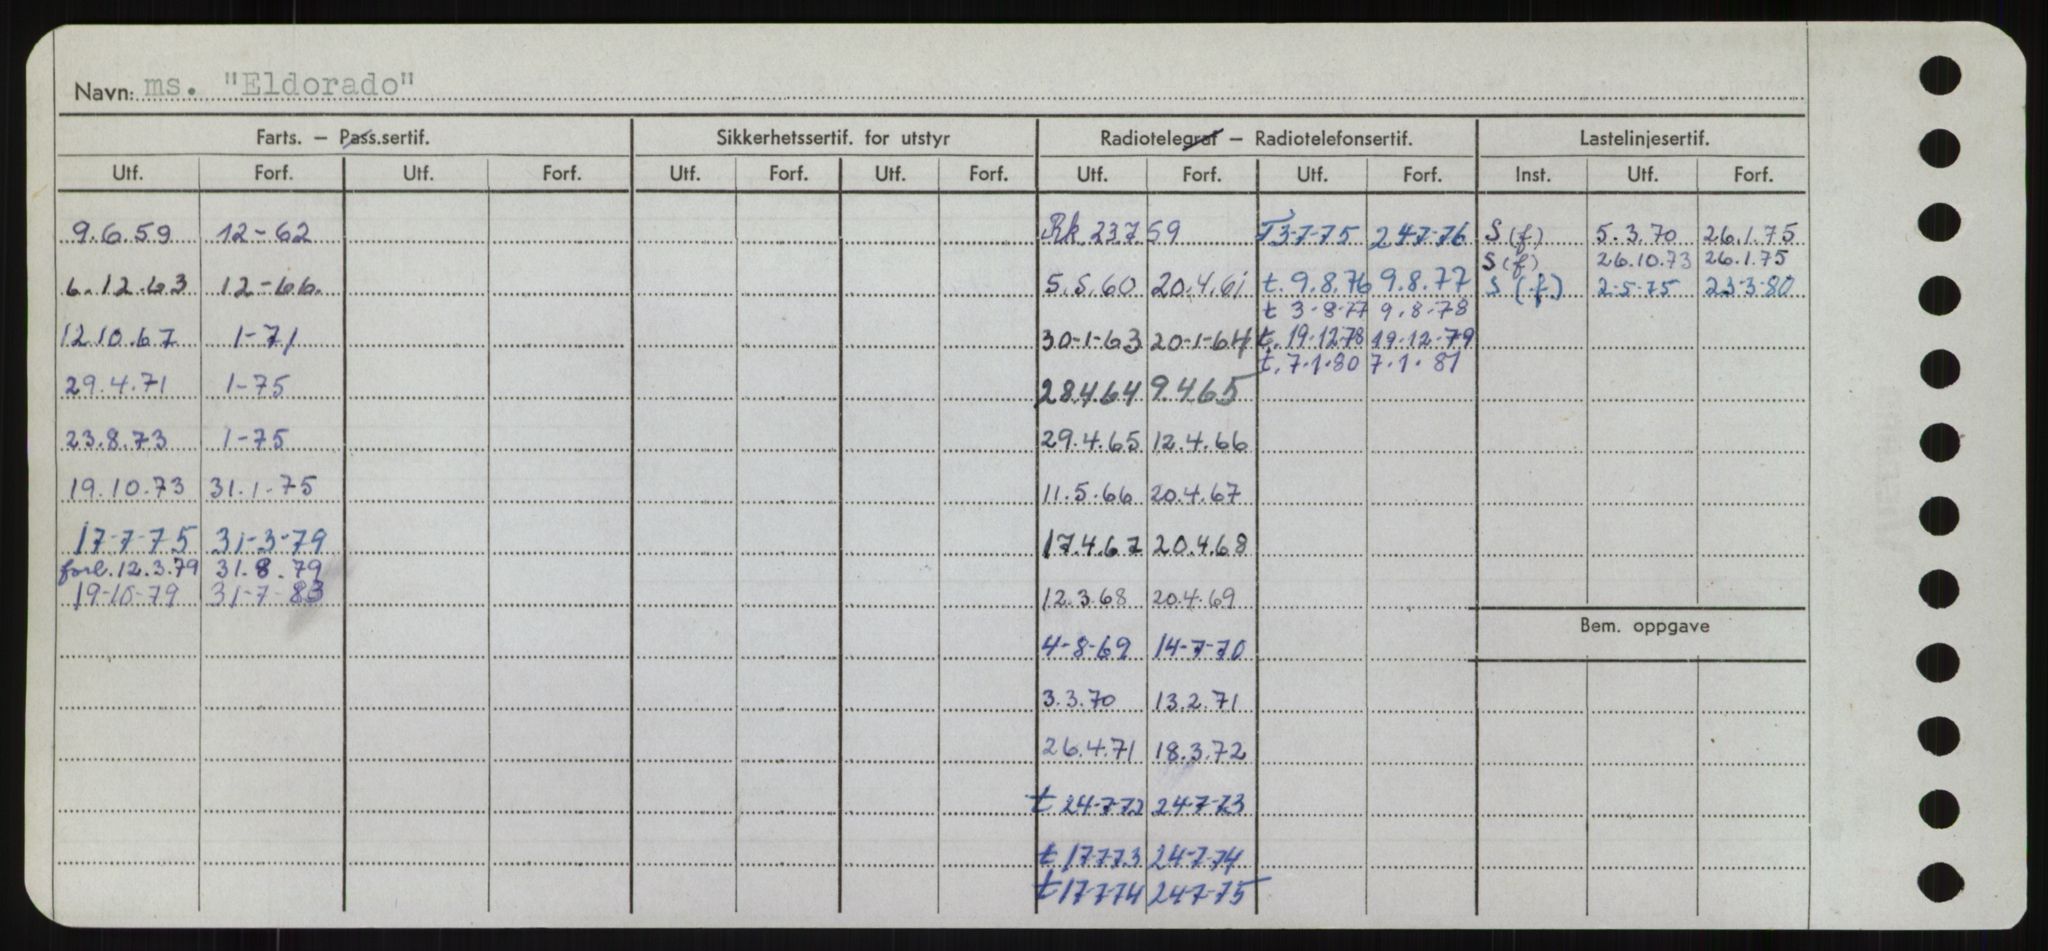 Navn: ms. "Eldorado"
Farts. – Pass.sertif. Sikkerhetssertif. for utstyr Radiotelegraf – Radiotelefonsertif. Lastelinjesertif.
Utf. Forf. Utf. Forf. Utf. Forf. Utf. Forf. Utf. Forf. Utf. Forf. Inst. Utf. Forf.
9.6.59 12-62 Rk 23759 T3-7-75 247-76 S (f) 5.3.70 26.1.75
S (f) 26.10.73 26.1.75
6.12.63 12-66. 5.5.60 20.4.61 t. 9.8.76 9.8.77 S (f) 2-5-75 23-3-80
t 3-8-77 9.8-78
12.10.67 1-71 30-1-63 20-1-64 t. 19-1278 19-12-79
t. 7.1.80 7.1.81
29.4.71 1-75 28.4.64 9.4.65
23.8.73 1-75 29.4.65 12.4.66
19.10.73 31.1-75 11.5.66 20.4.67
17-7-75 31-3-79 17.4.67 20.4.68
forl. 12.3.79 31.8.79
19-10-79 31-7-83 12.3.68 20.4.69
Bem. oppgave
4-8-69 14-7-70
3.3.70 13.2.71
26.4.71 18.3.72
t 24-772 24-7-73
t 17773 24-7-74
t 17-774 247-75